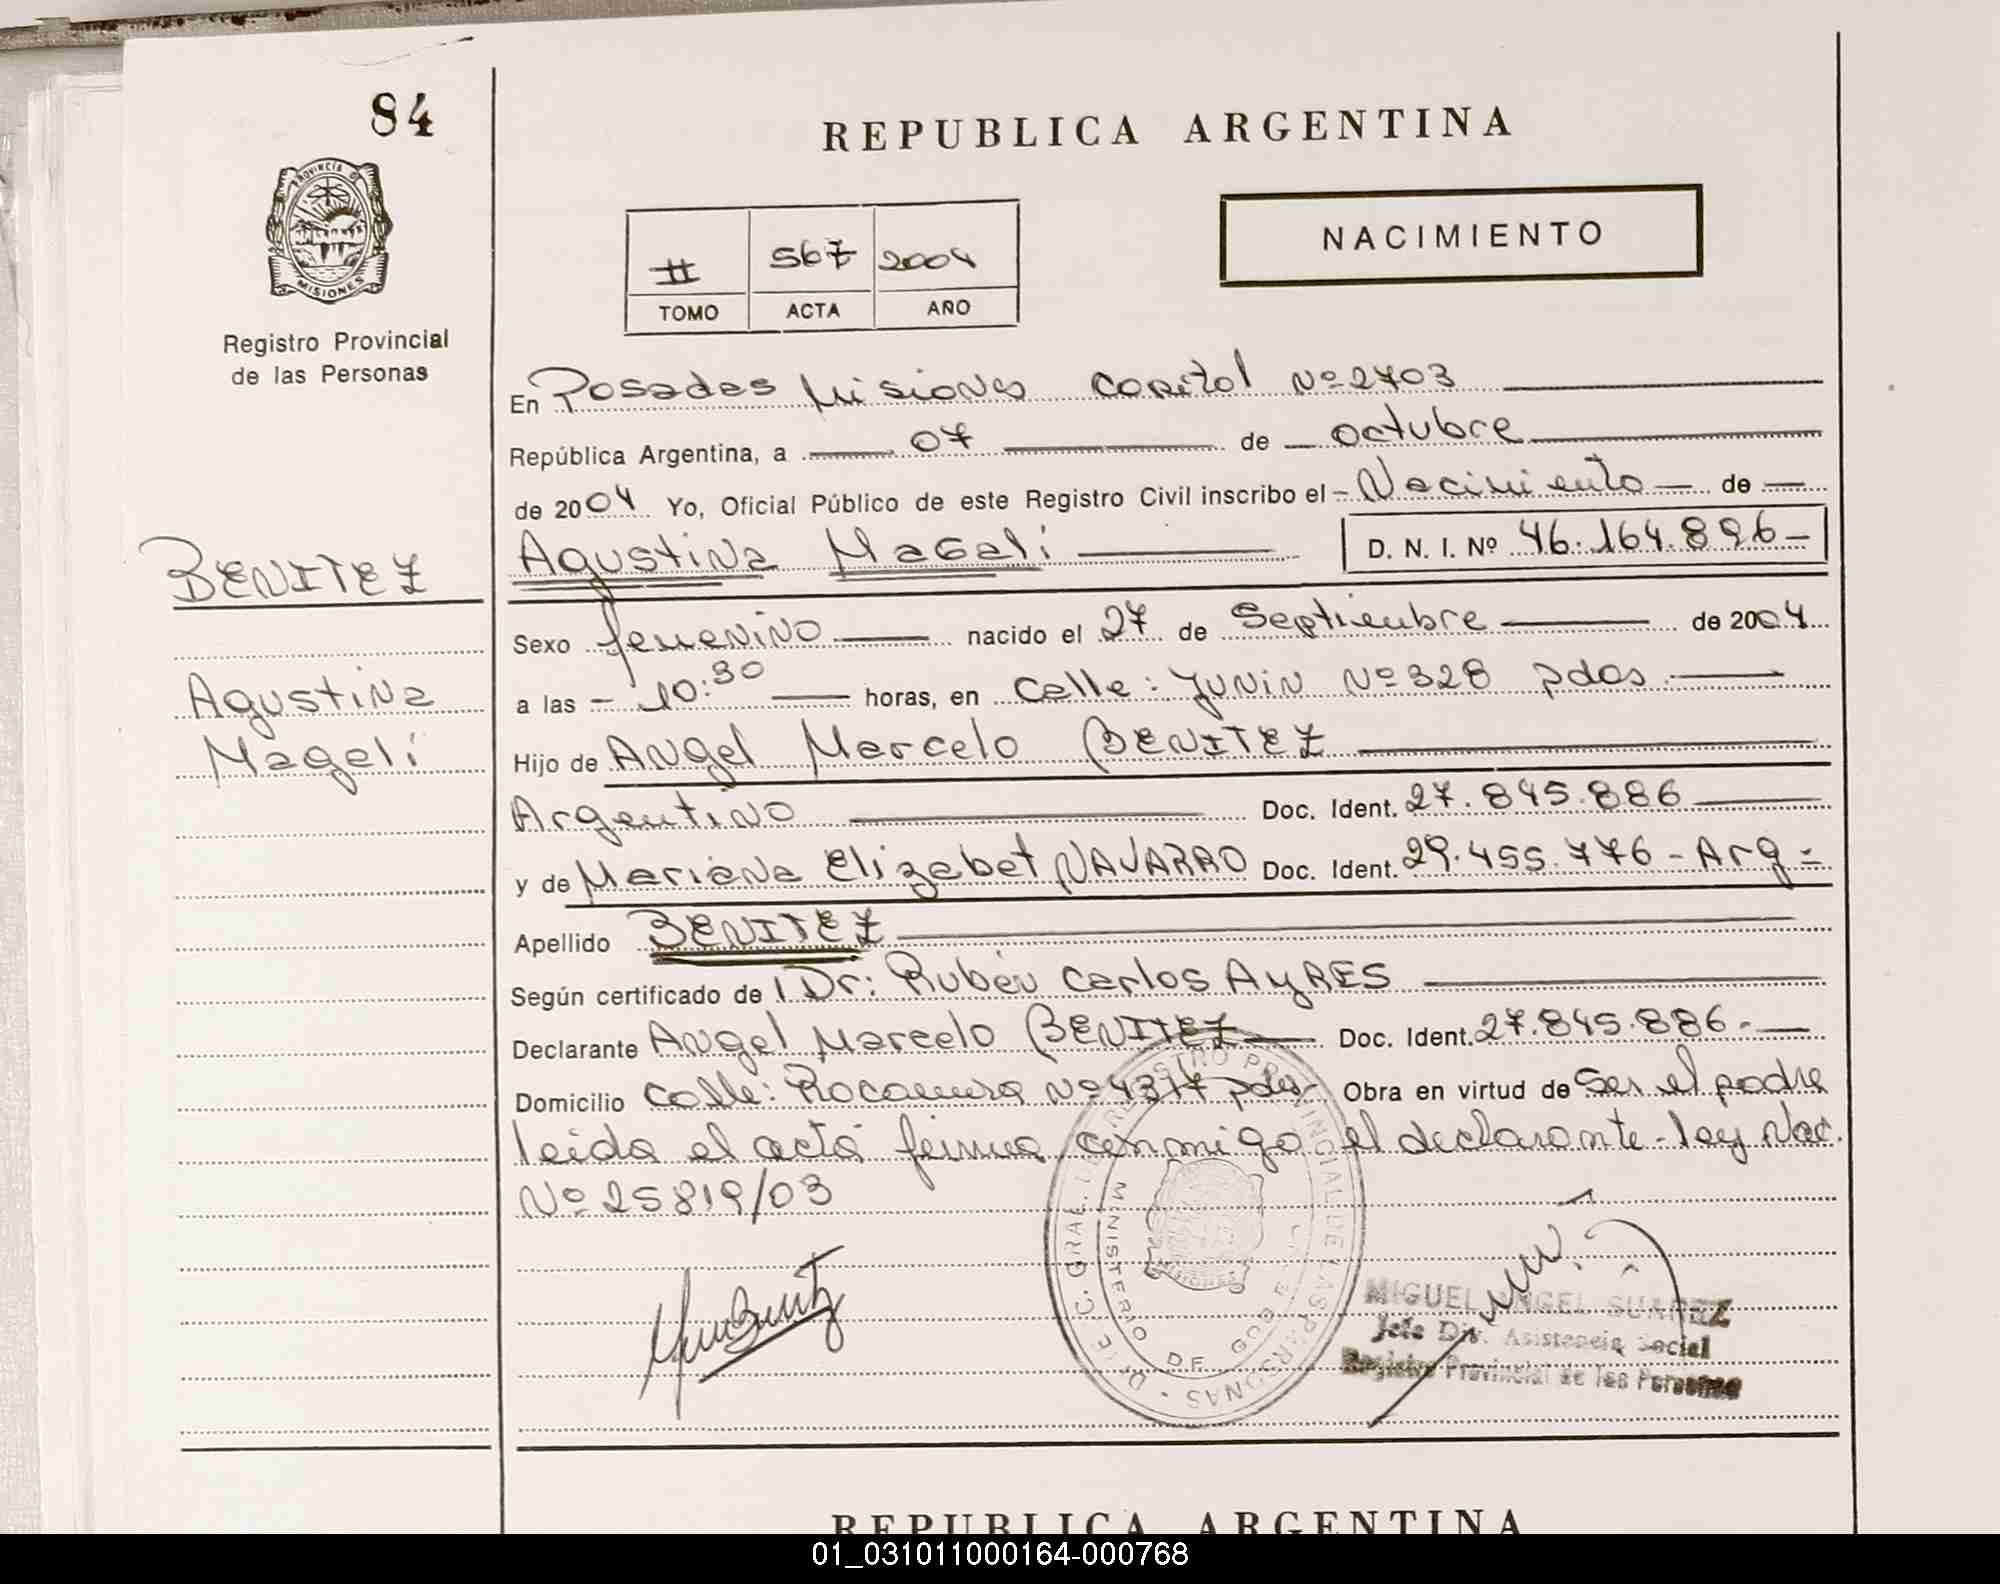 84
PROVINCIA D
MISIONES
Registro Provincial
de las Personas
REPUBLICA ARGENTINA
NACIMIENTO
II 567 2004
TOMO ACTA AÑO
En Posadas Misiones Capital Nº 2703
República Argentina, a 07 de octubre
de 2004 Yo, Oficial Público de este Registro Civil inscribo el - Nacimiento - de -
Agustina Magalí D. N. I. Nº 46.164.896-
BENITEZ
Agustina
Magalí
Sexo femenino nacido el 27 de Septiembre de 2004
a las - 10:30 horas, en Calle: Junin Nº 328 pdas.
Hijo de Angel Marcelo BENITEZ
Argentino Doc. Ident. 27.845.886
y de Mariana Elizabet NAVARRO Doc. Ident. 29.455.776 - Arg -
Apellido BENITEZ
Según certificado de Dr: Rubén Carlos AyRES
Declarante Angel Marcelo BENITEZ Doc. Ident. 27.845.886.-
Domicilio Calle: Rocamora Nº 4377 pdas- Obra en virtud de Ser el padre
leida el acta firma conmigo el declarante - ley Nac.
Nº 25819/03
DIREC. GRAL. DEL REGISTRO PROVINCIAL DE LAS PERSONAS
MINISTERIO DE GOB
MISIONES
MIGUEL ANGEL SUAREZ
Jefe Div. Asistencia Social
Registro Provincial de las Personas
REPUBLICA ARGENTINA
01_031011000164-000768